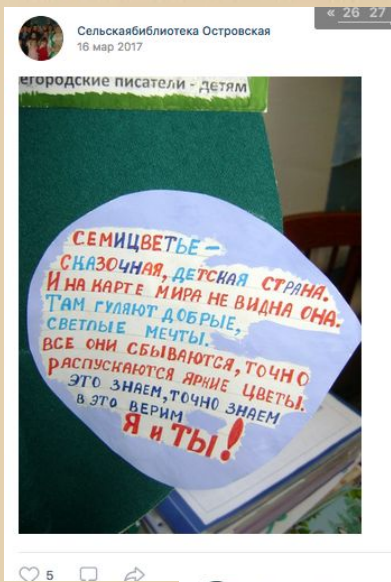 « 26 27
Сельскаябиблиотека Островская
16 мар 2017
егородские писатели - детям
СЕМИЦВЕТЬЕ –
СКАЗОЧНАЯ, ДЕТСКАЯ СТРАНА.
И НА КАРТЕ МИРА НЕ ВИДНА ОНА.
ТАМ ГУЛЯЮТ ДОБРЫЕ,
СВЕТЛЫЕ МЕЧТЫ.
ВСЕ ОНИ СБЫВАЮТСЯ, ТОЧНО
РАСПУСКАЮТСЯ ЯРКИЕ ЦВЕТЫ.
ЭТО ЗНАЕМ, ТОЧНО ЗНАЕМ
В ЭТО ВЕРИМ
Я и ТЫ!
5